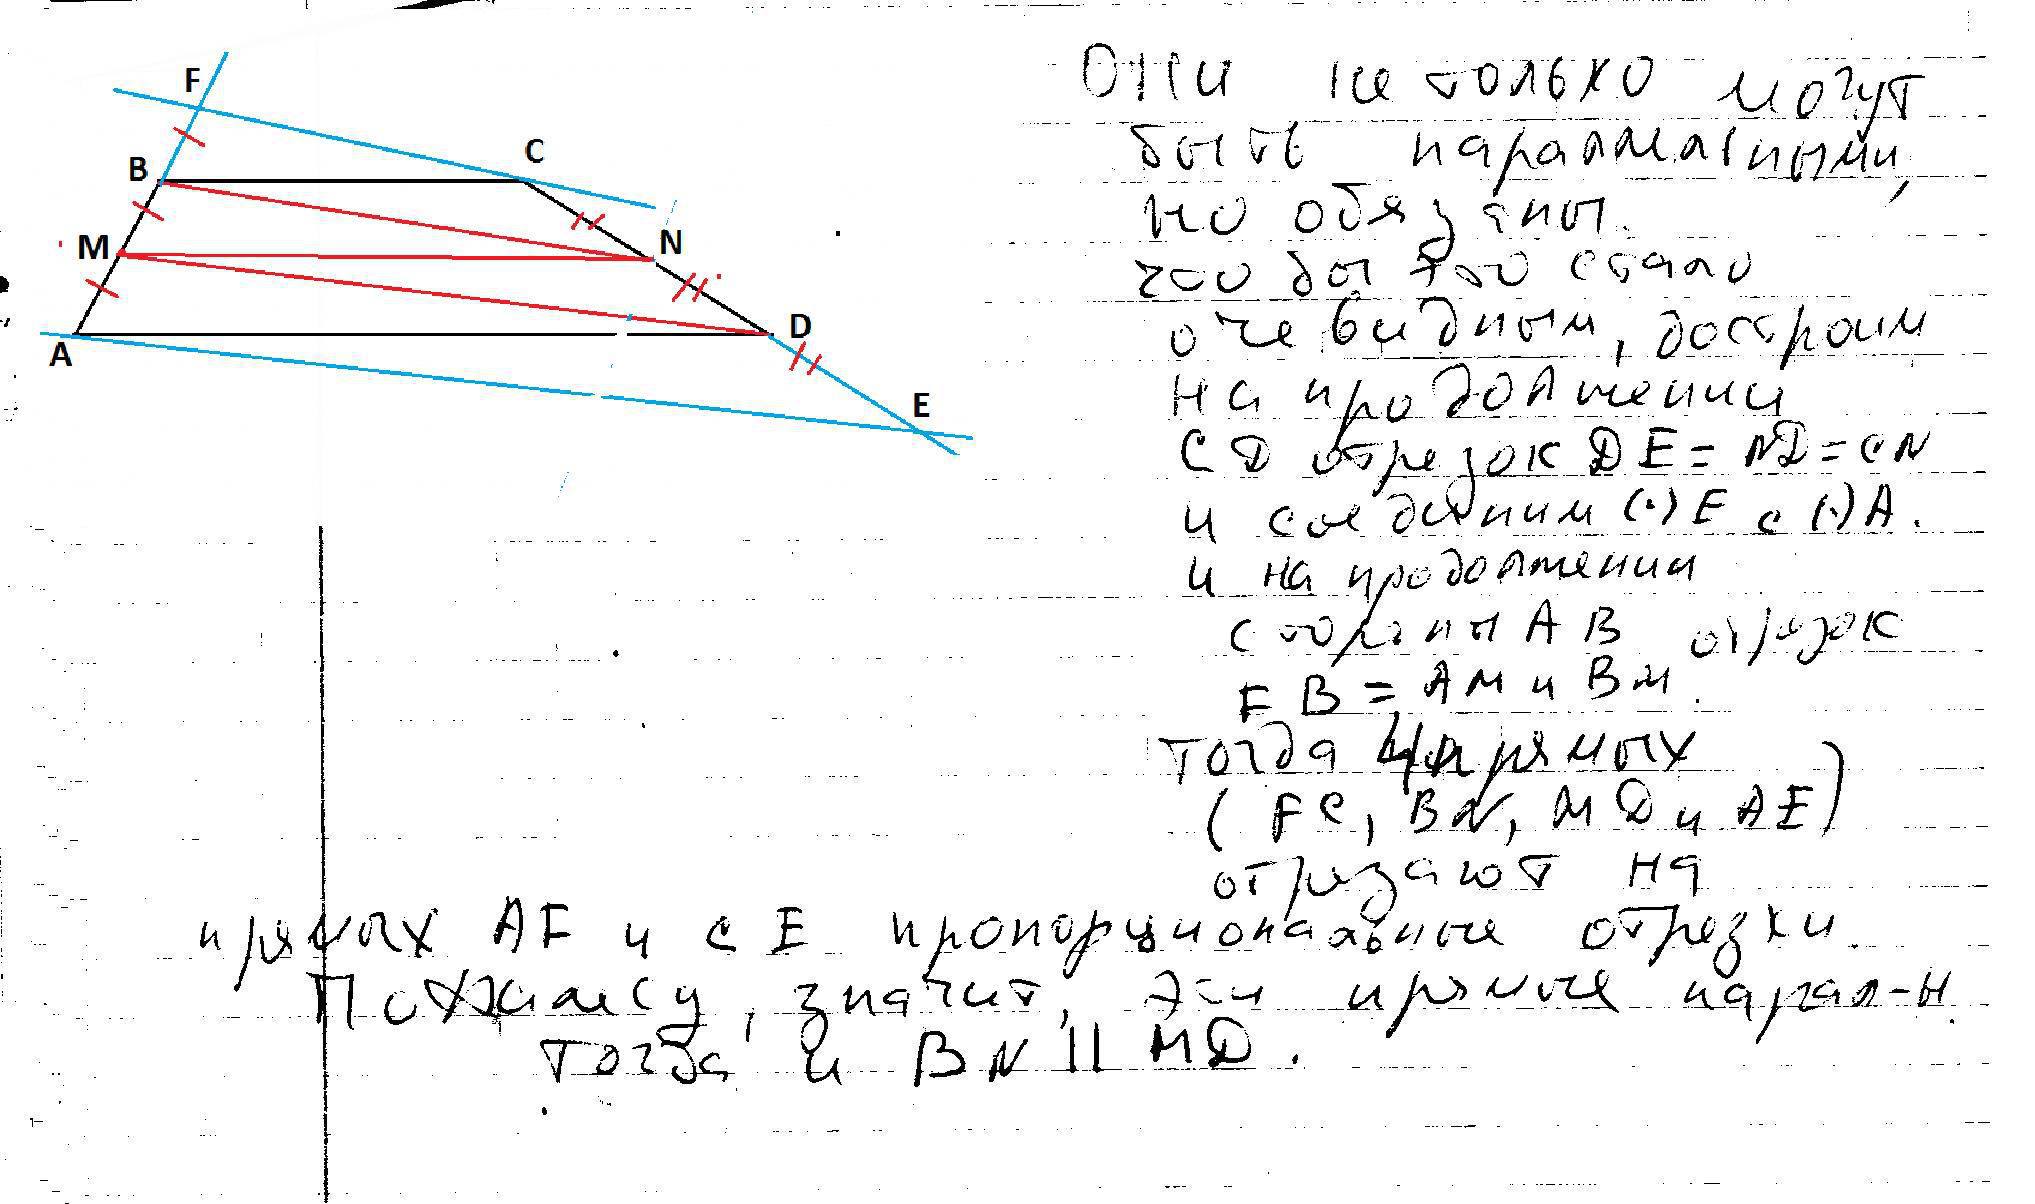 F
B
C
M
N
A
D
E
Они не только могут
быть параллельными,
но обязаны.
чтобы это стало
очевидным, достроим
на продолжении
CD отрезок DE = ND = CN
и соединим (·) E с (·) A.
и на продолжении
стороны AB отрезок
FB = AM и BM.
тогда 4 прямых
( FC, BN, MD и AE )
отрезают на
прямых AF и CE пропорциональные отрезки.
По Фалесу, значит, эти прямые парал-ы.
тогда и BN || MD.